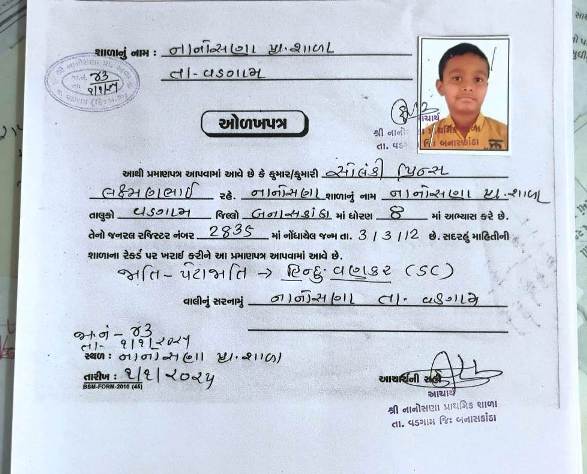 શાળાનું નામ : નાનોસણા પ્રા. શાળા
તા - વડગામ
જા.નં. ૬૩
ઓળખપત્ર
આચાર્ય
શ્રી નાનો પ્રાથમિક શાળા
તા. વડ જિ: બનાસકાંઠા
આથી પ્રમાણપત્ર આપવામાં આવે છે કે કુમાર/કુમારી સોલંકી પ્રિન્સ
લક્ષ્મણભાઈ રહે. નાનોસણા શાળાનું નામ નાનોસણા પ્રા. શાળા
તાલુકો વડગામ જિલ્લો બનાસકાંઠા માં ધોરણ 8 માં અભ્યાસ કરે છે.
તેનો જનરલ રજિસ્ટર નંબર 2835 માં નોંધાયેલ જન્મ તા. 3/3/12 છે. સદરહું માહિતીની
શાળાના રેકર્ડ પર ખરાઈ કરીને આ પ્રમાણપત્ર આપવામાં આવે છે.
જાતિ - પેટાજાતિ → હિન્દુ વણકર (SC)
વાલીનું સરનામું નાનોસણા તા - વડગામ
જા.નં - ૬૩
તા - ૧/૧/૨૦૨૫
સ્થળ : નાનોસણા પ્રા. શાળા
તારીખ : ૧/૧/૨૦૨૫
BSM-FORM-2016 (45)
આચાર્યની સહી
આચાર્ય
શ્રી નાનોસણા પ્રાથમિક શાળા
તા. વડગામ જિ: બનાસકાંઠા